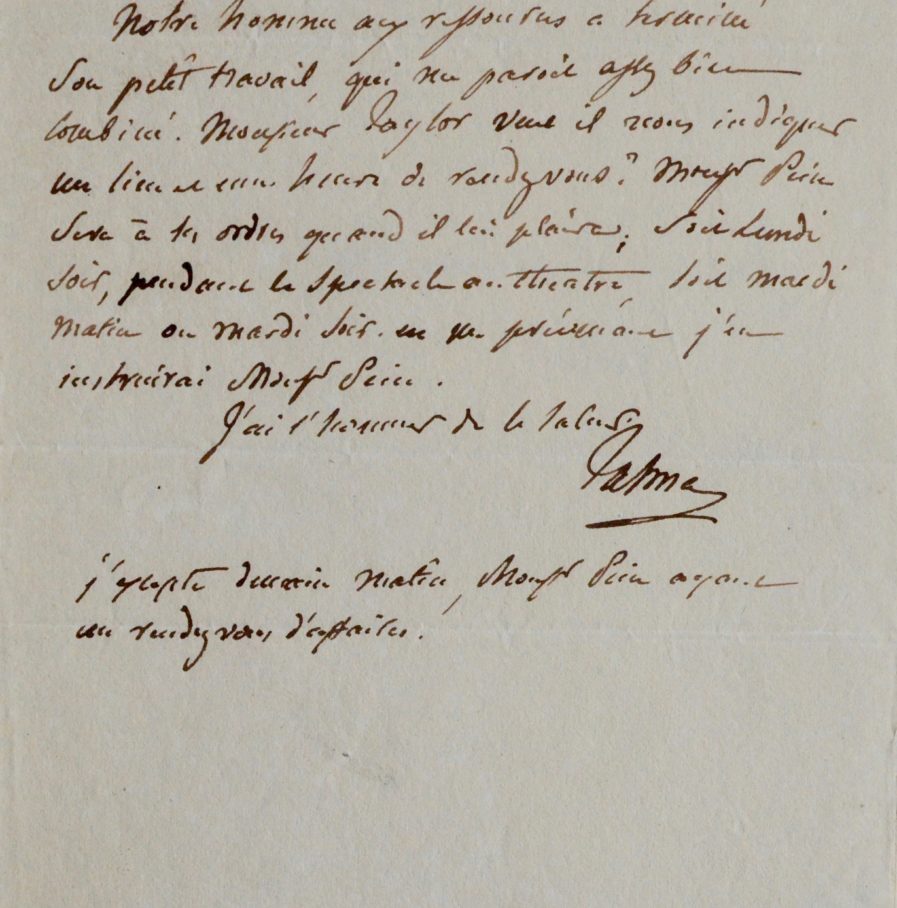 Notre homme aux ressources a terminé
son petit travail, qui me paroit assez bien
combiné. Monsieur Taylor veut il nous indiquer
un lieu et une heure de rendezvous? Monsr
sera à ses ordres quand il lui plaira; soit Lundi
soir, pendant le spectacle au theatre soit mardi
matin ou mardi soir. en me prévenant j'en
instruirai Monsr
J'ai l'honneur de le saluer
Talma
j'excepte demain matin, Monsr ayant
un rendezvous d'affaires.